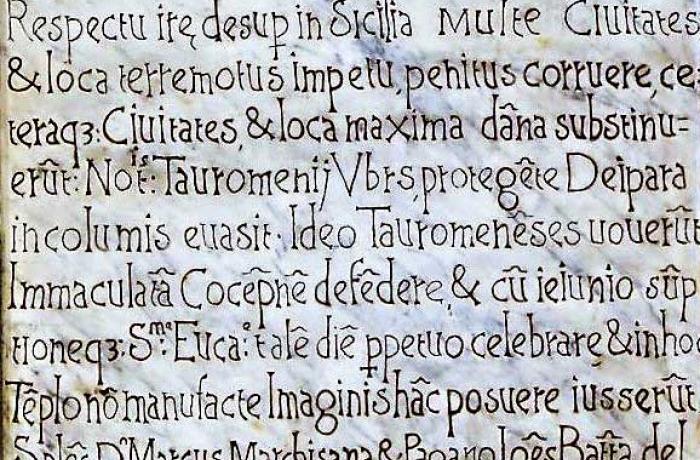 Respectu irę desup in Sicilia Multe Ciuitates
& loca terremotus impetu, penitus corruere, ce-
teraqȝ: Ciuitates, & loca maxima dãna substinu=
erũt: Noĩs: Tauromenij Vbrs, protegẽte Deipara
incolumis euasit. Ideo Tauromenẽses uouerũt
Immaculatã Cocẽpnẽ defẽdere, & cũ ieiunio sũp
tioneqȝ: Sme: Euca:e talẽ diẽ ppetuo celebrare, & inhoc
Tẽplo nõ manufacte Imaginis hãc posuere iusserũt
Marcus Marchisana & Batta del